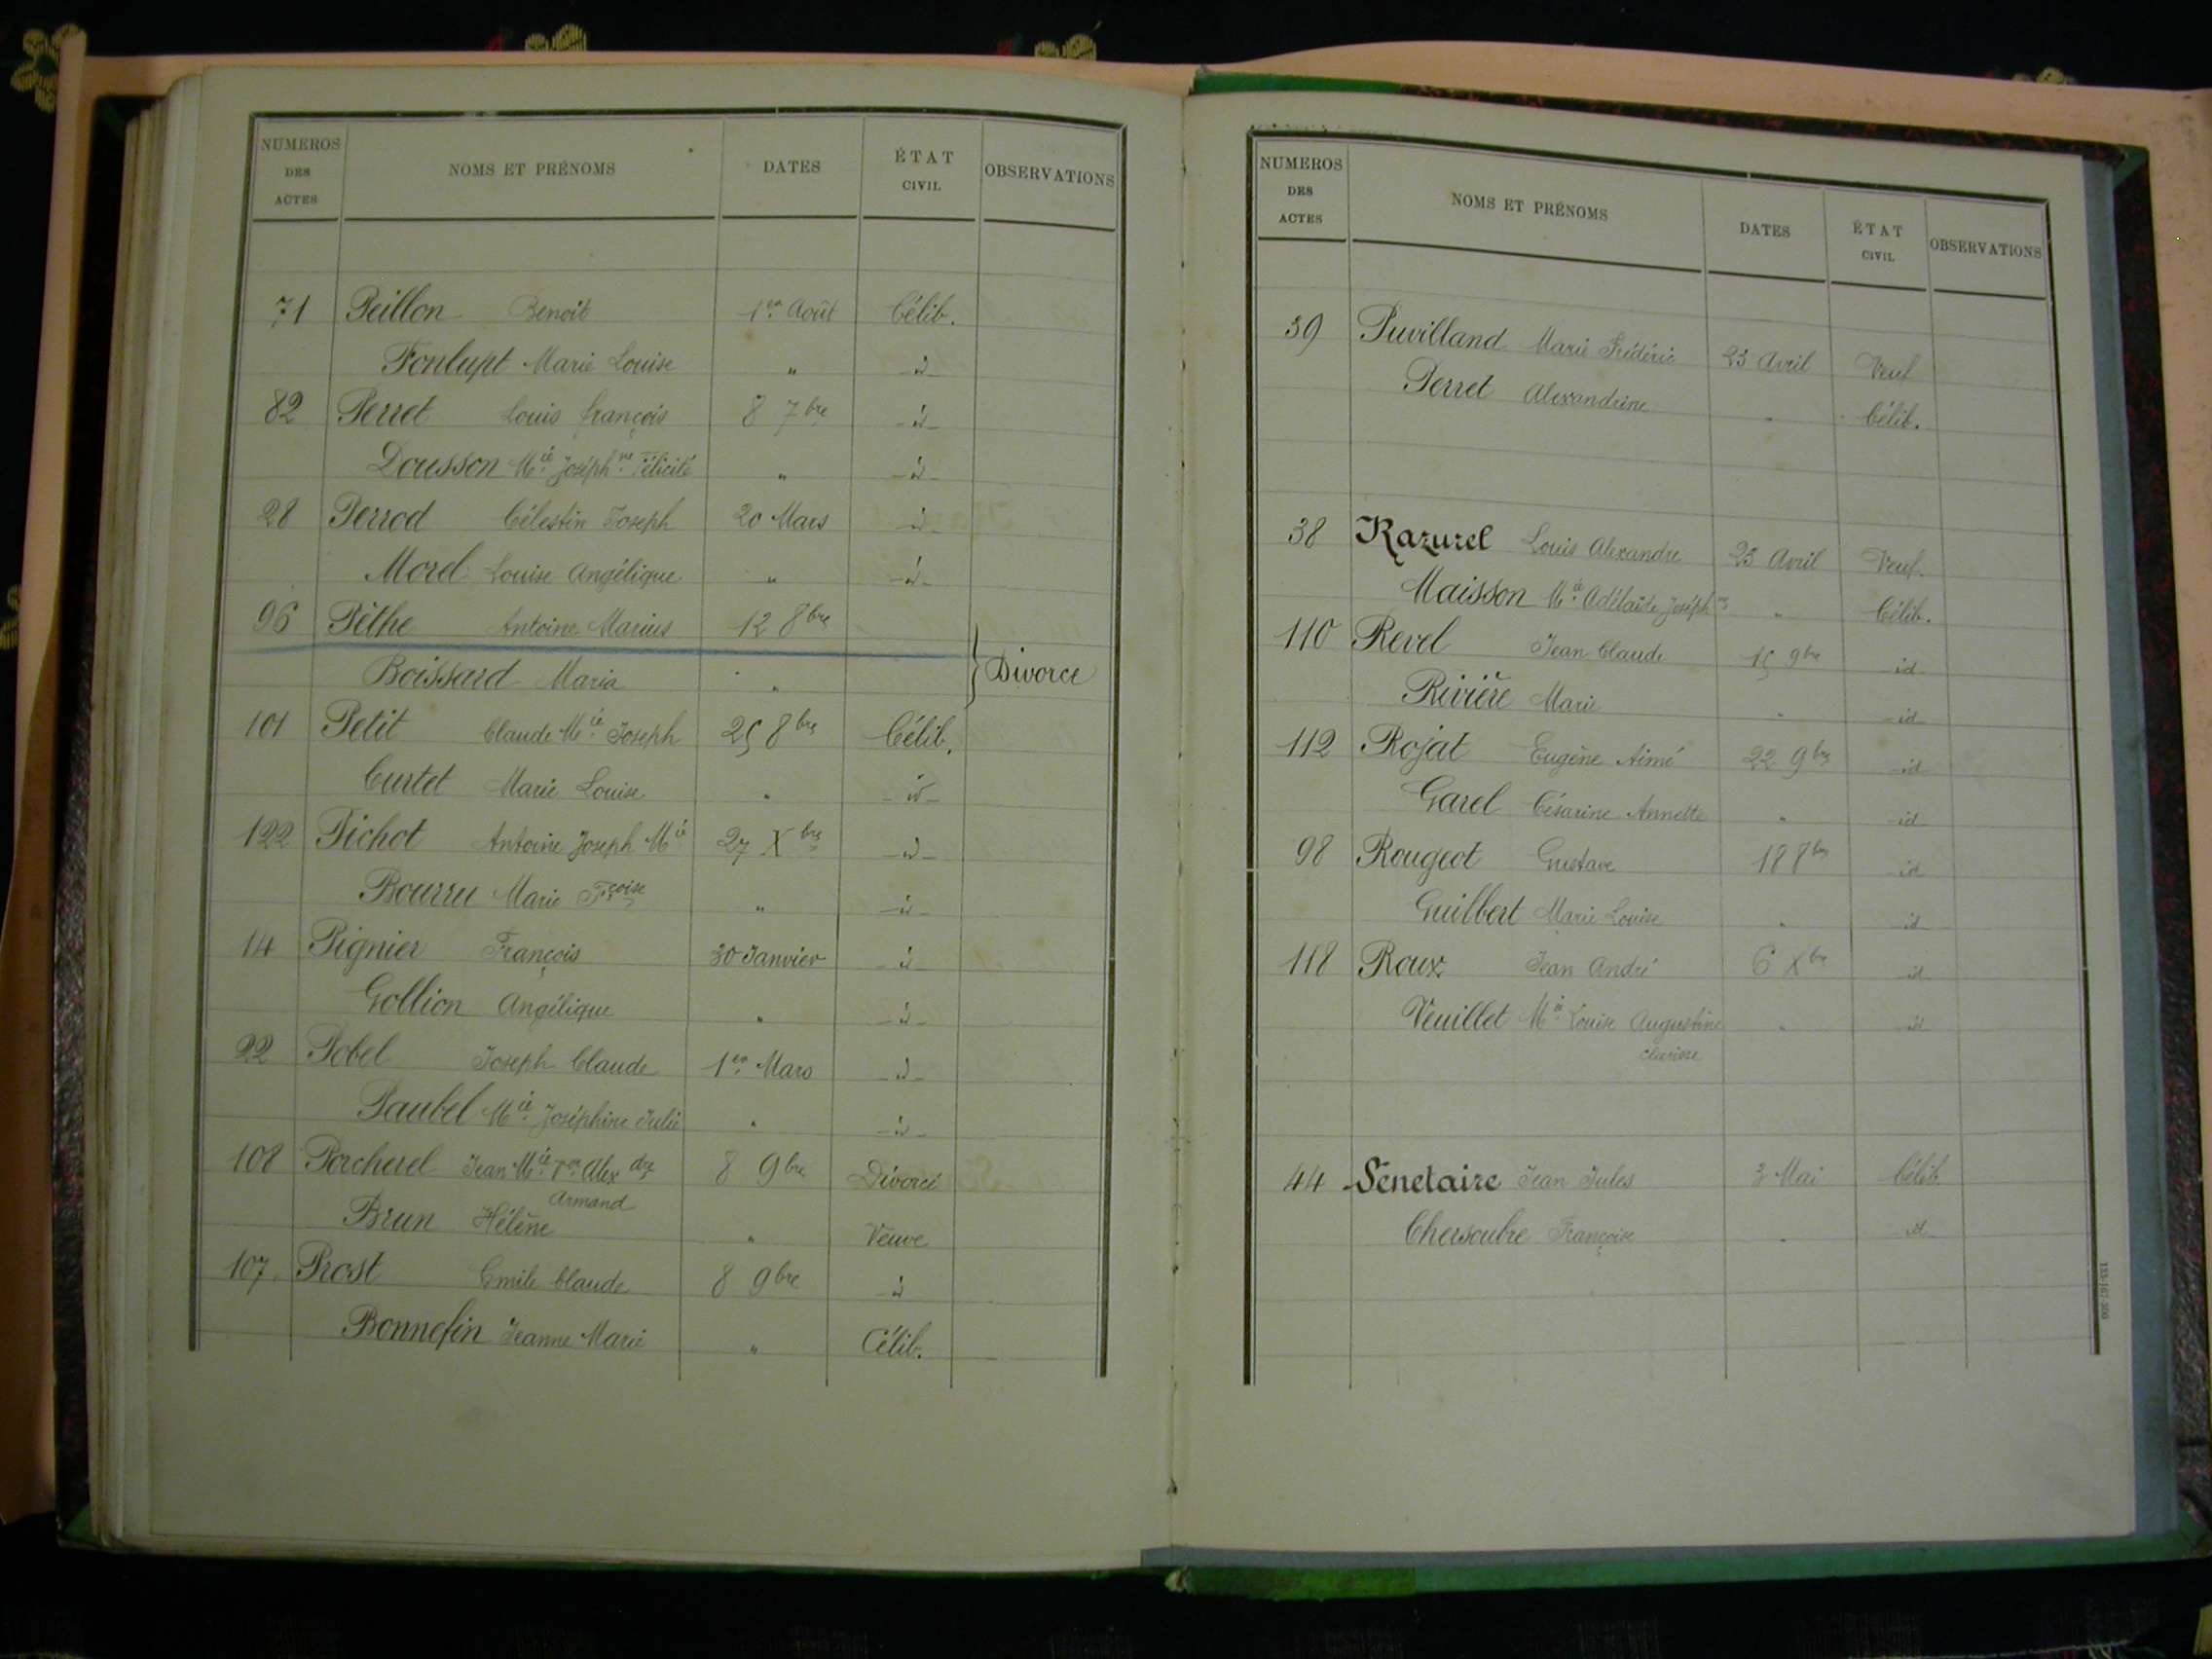 NUMEROS DES ACTES NOMS ET PRÉNOMS DATES ÉTAT CIVIL OBSERVATIONS
71 Peillon Benoit 1er Août Célib.
Fonlupt Marie Louise " id
82 Perret Louis François 8 7bre id
Dousson Mie Joséphne Félicité " id
28 Perrod Célestin Joseph 20 Mars id
Morel Louise Angélique " id
96 Pèthe Antoine Marius 12 8bre
Boissard Maria " } Divorce
101 Petit Claude Mie Joseph 25 8bre Célib.
Curtet Marie Louise " id
122 Pichot Antoine Joseph Mie 27 Xbre id
Bourru Marie Fçoise " id
14 Pignier François 30 Janvier id
Gollion Angélique " id
22 Pobel Joseph Claude 1er Mars id
Paubel Mie Joséphine Julie " id
108 Porcherel Jean Mie Alexdre 8 9bre Divorcé
Armand
Brun Hélène " Veuve
107 Prost Emile Claude 8 9bre id
Bonnefin Jeanne Marie " Célib.
NUMEROS DES ACTES NOMS ET PRÉNOMS DATES ÉTAT CIVIL OBSERVATIONS
39 Puvilland Marie Frédéric 23 Avril Veuf
Perret Alexandrine " Célib.
38 Razurel Louis Alexandre 23 Avril Veuf.
Maisson Mie Adélaïde Joséphne " Célib.
110 Revel Jean Claude 15 9bre id
Rivière Marie " id
112 Rojat Eugène Aimé 22 9bre id
Garel Césarine Annette " id
98 Rougeot Gustave 18 8bre id
Guilbert Marie Louise " id
118 Roux Jean André 6 Xbre id
Veuillet Mie Louise Augustine " id
Clarisse
44 Sénetaire Jean Jules 3 Mai Célib.
Chersoubre Françoise " id